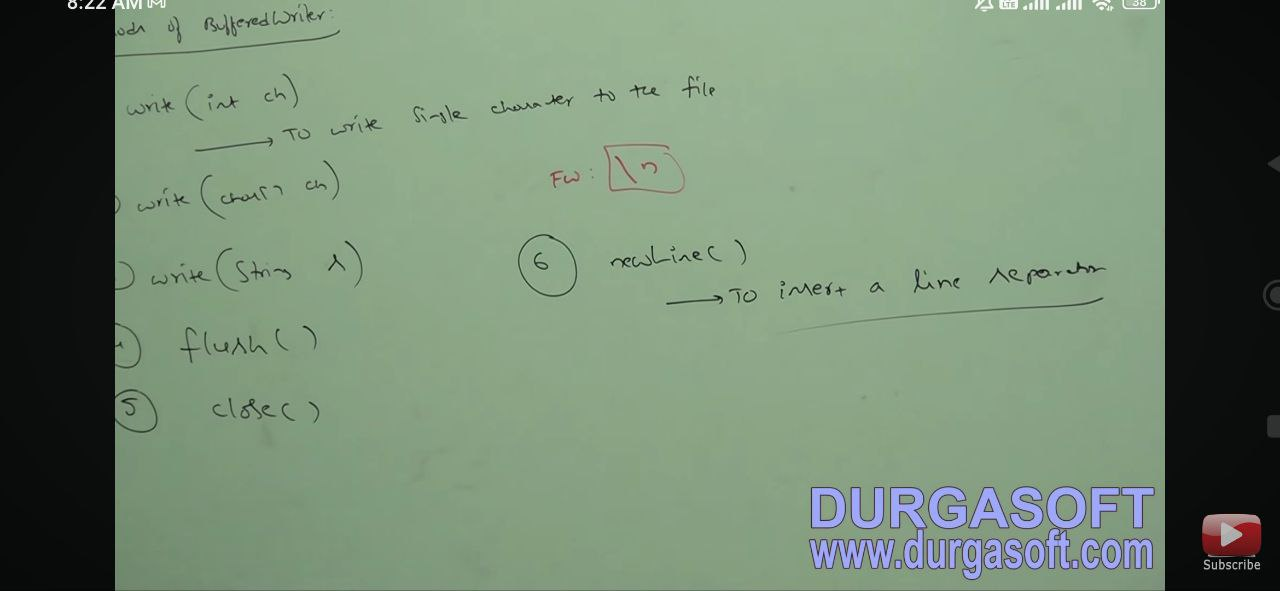 8:22 AM
LTE
38
ods of BufferedWriter:
write (int ch)
TO write single character to the file
write (char[] ch)
FW: \n
write (String s)
6 newLine( )
TO insert a line separator
4 flush( )
5 close( )
DURGASOFT
www.durgasoft.com
Subscribe